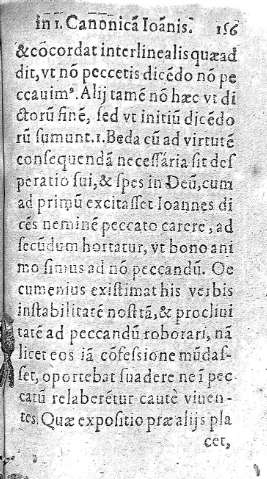 in 1. Canonicā Ioānis. 156
&cōcordat interlinealis quæad
dit, vt nō peccetis dicēdo nō pe
ccauimꝰ. Alij tamē nō hæc vt di
ctorū finē, sed vt initiū dicēdo
rū sumunt. 1. Beda cū ad virtutē
consequendā necessaria sit des
peratio sui, & spes in Deū, cum
ad primū excitasset Ioannes di
cēs neminē peccato carere, ad
secūdum hortatur, vt bono ani
mo simus ad nō peccandū. Oe
cumenius existimat his verbis
instabilitatē nostrā, & procliui
tatē ad peccandū roborari, nā
licet eos iā cōfessione mūdas-
set, oportebat suadere ne ī pec
catū relaberētur cautè viuen-
tes. Quæ expositio præ alijs pla
cet,